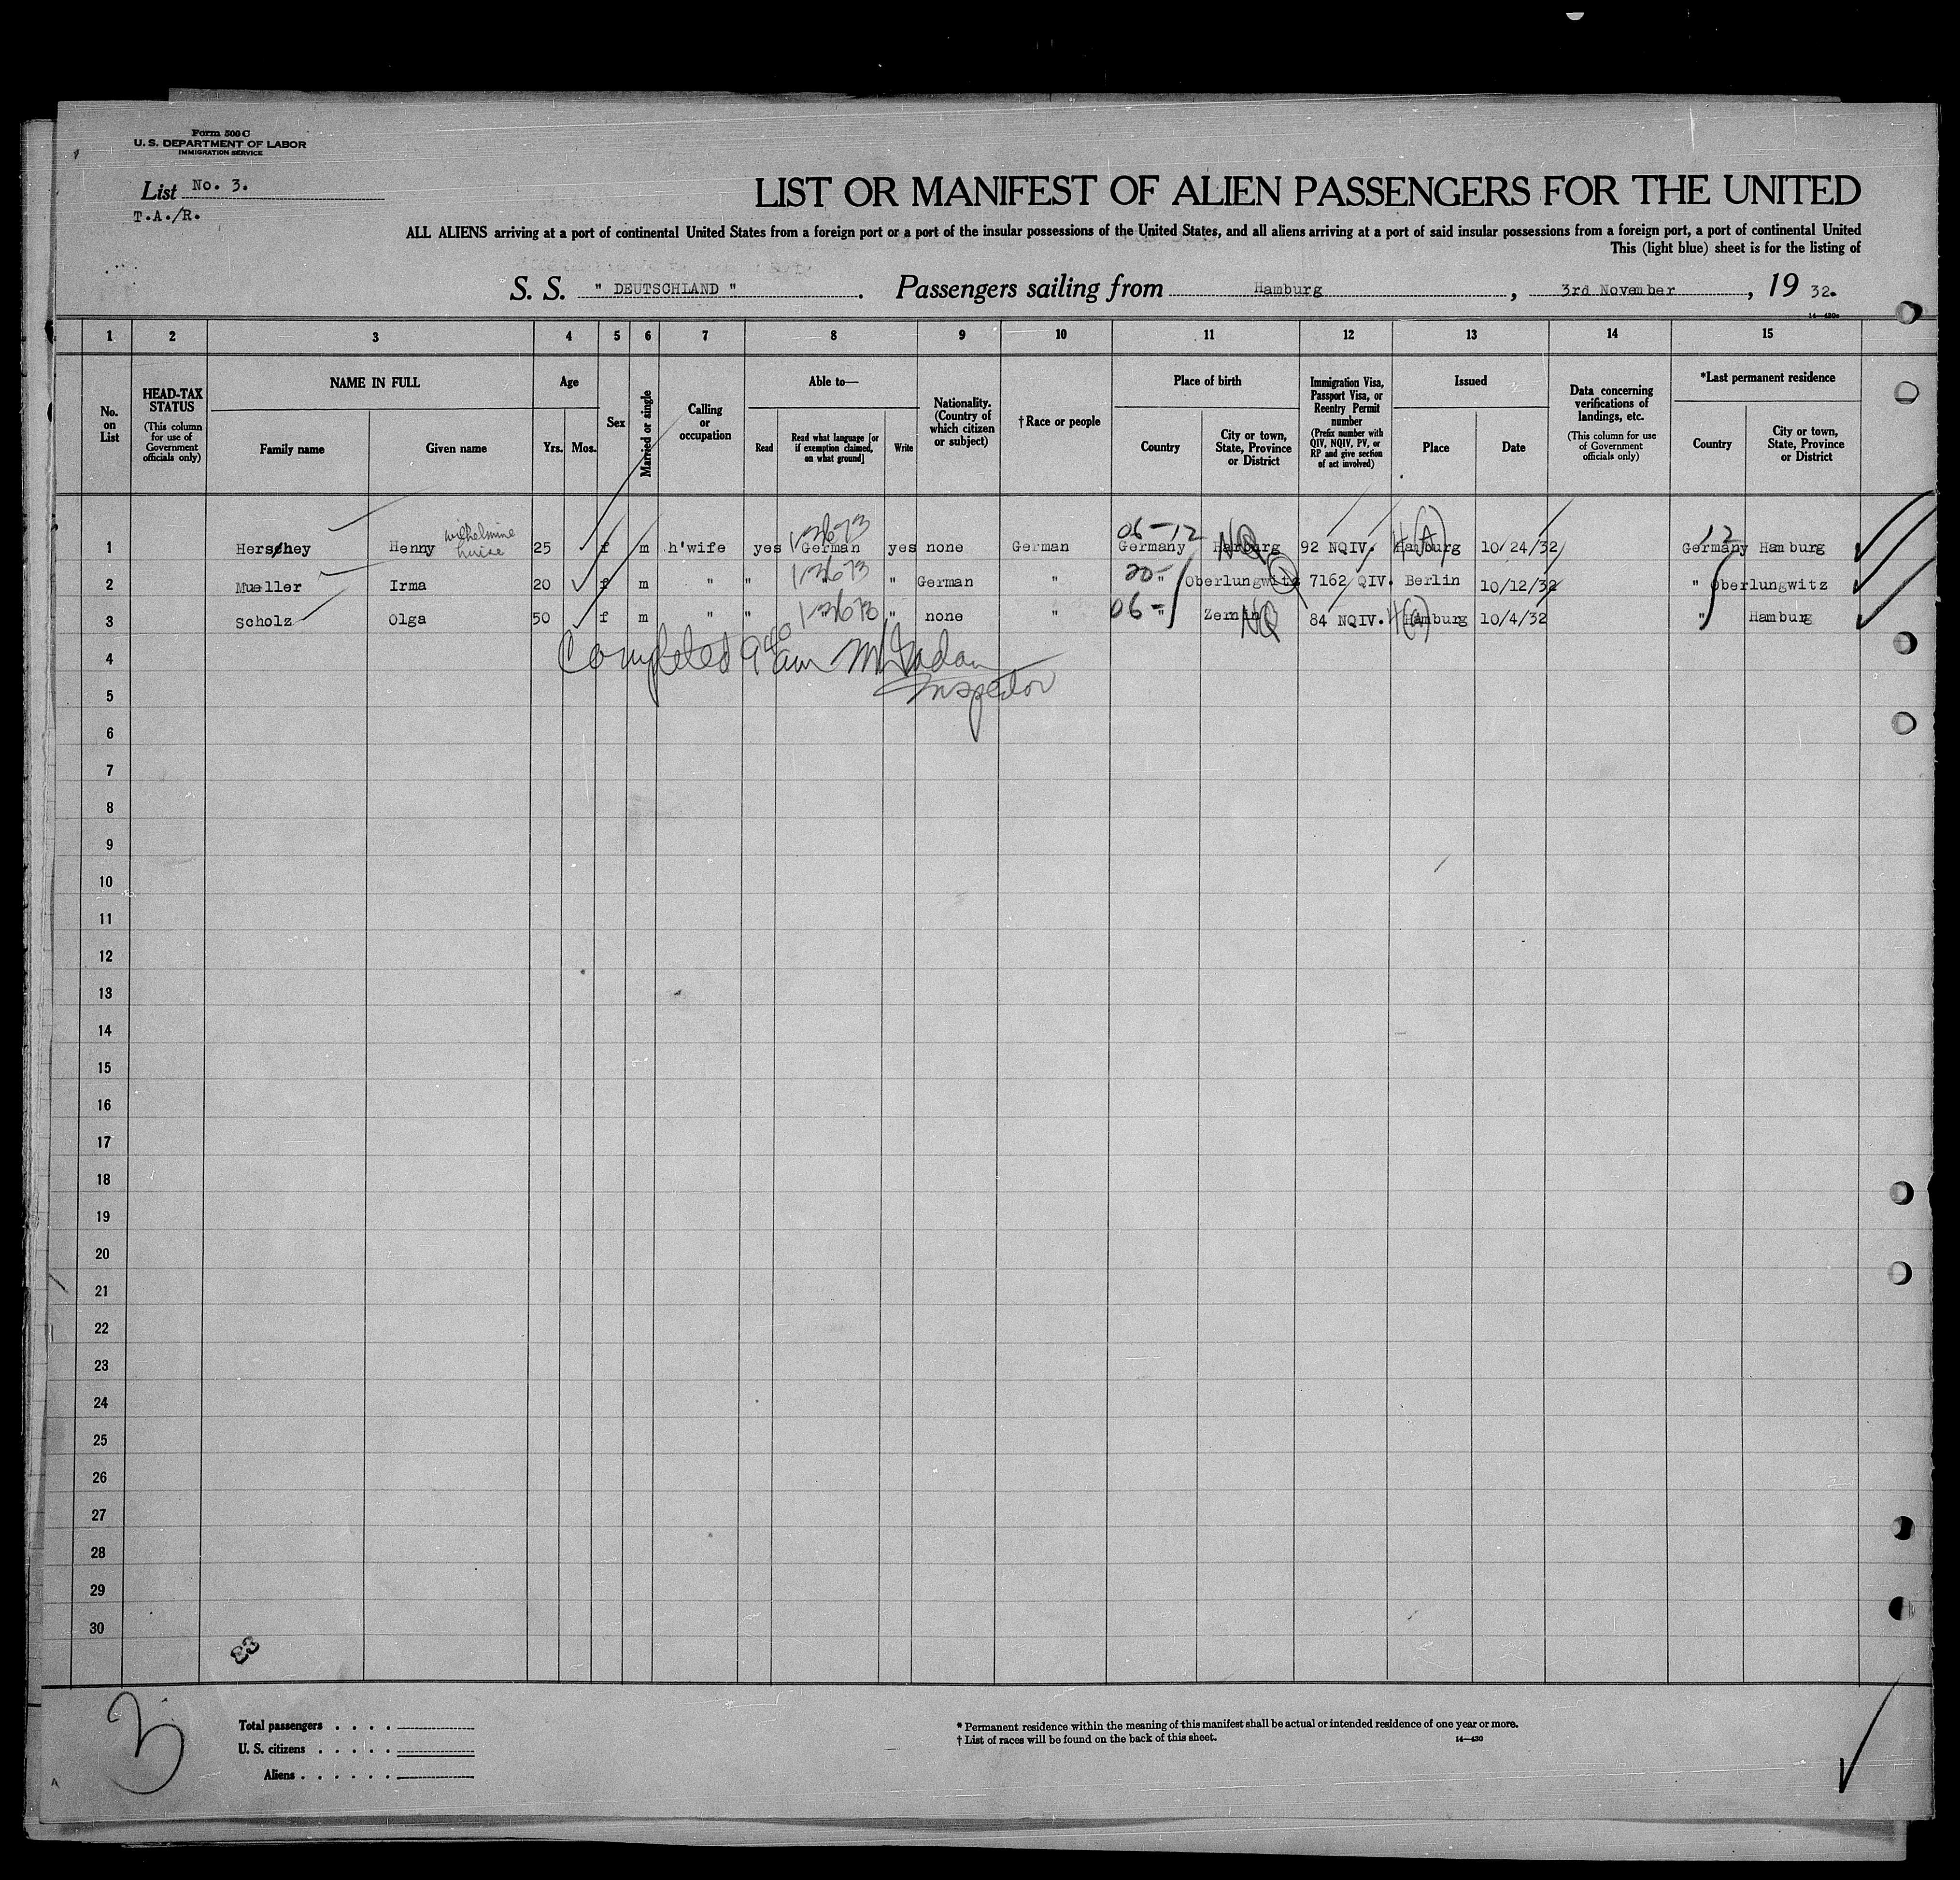 Form 500 C
U. S. DEPARTMENT OF LABOR
IMMIGRATION SERVICE
List No. 3.
T.A./R.
LIST OR MANIFEST OF ALIEN PASSENGERS FOR THE UNITED
ALL ALIENS arriving at a port of continental United States from a foreign port or a port of the insular possessions of the United States, and all aliens arriving at a port of said insular possessions from a foreign port, a port of continental United
This (light blue) sheet is for the listing of
S. S. " DEUTSCHLAND ". Passengers sailing from Hamburg, 3rd November, 19 32.
14—430a
1 2 3 4 5 6 7 8 9 10 11 12 13 14 15
No. on List
HEAD-TAX STATUS
(This column for use of Government officials only)
NAME IN FULL
Family name Given name
Age
Yrs. Mos.
Sex
Married or single
Calling or occupation
Able to—
Read Read what language [or if exemption claimed, on what ground] Write
Nationality. (Country of which citizen or subject)
†Race or people
Place of birth
Country City or town, State, Province or District
Immigration Visa, Passport Visa, or Reentry Permit number
(Prefix number with QIV, NQIV, PV, or RP and give section of act involved)
Issued
Place Date
Data concerning verifications of landings, etc.
(This column for use of Government officials only)
*Last permanent residence
Country City or town, State, Province or District
Wilhelmine 06-12 NQ 4(A) 12
1 Hershey Henny Luise 25 f m h'wife yes German yes none German Germany Hamburg 92 NQIV. Hamburg 10/24/32 Germany Hamburg
20-
2 Mueller Irma 20 f m " " " German " " Oberlungwitz 7162 QIV. Berlin 10/12/32 " Oberlungwitz
06- NQ 4(A)
3 Scholz Olga 50 f m " " " " none " " Zernin 84 NQIV. Hamburg 10/4/32 " Hamburg
Completed 9 40 am
4
Inspector
5
6
7
8
9
10
11
12
13
14
15
16
17
18
19
20
21
22
23
24
25
26
27
28
29
30
83
3
Total passengers . . . .
U. S. citizens . . . . .
Aliens . . . . . .
* Permanent residence within the meaning of this manifest shall be actual or intended residence of one year or more.
† List of races will be found on the back of this sheet.
14—430